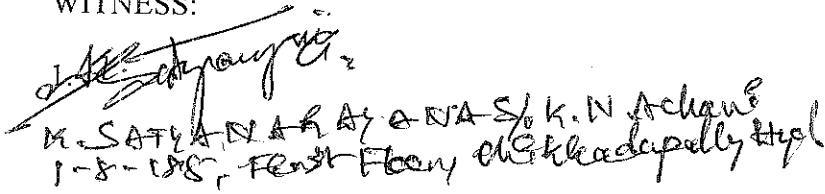 WITNESS:
K. SATYANARAYANA S/o K.N. Achari
1-8-185, First Floor, Chikkadapally Hyd